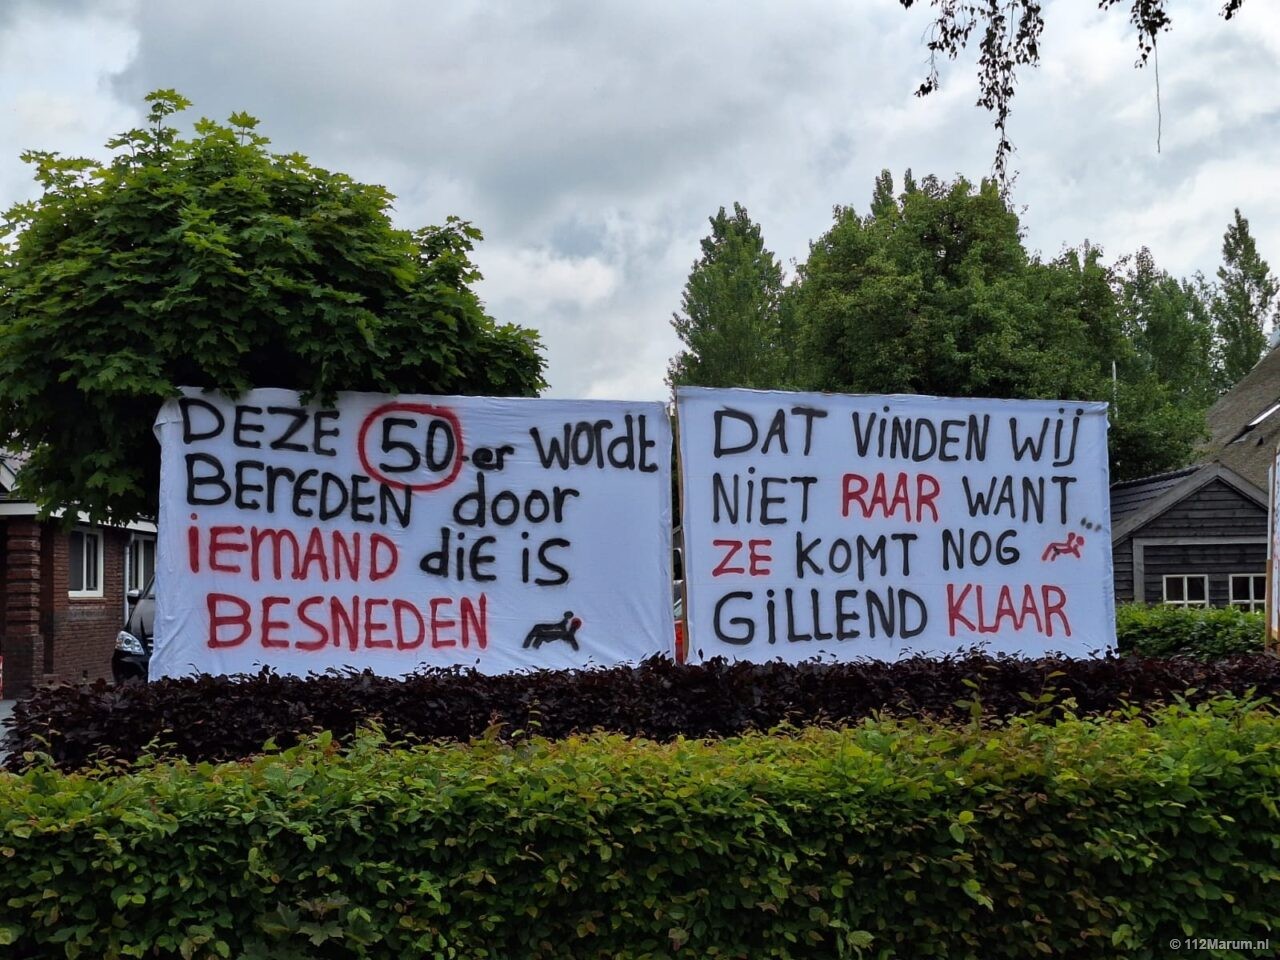 DEZE 50-er WORdt
BEREDEN door
iEMAND diE is
BESNEDEN
DAT ViNDEN WIJ
NiET RAAR WANT...
ZE KOMT NOG
GiLLEND KLAAR
© 112Marum.nl